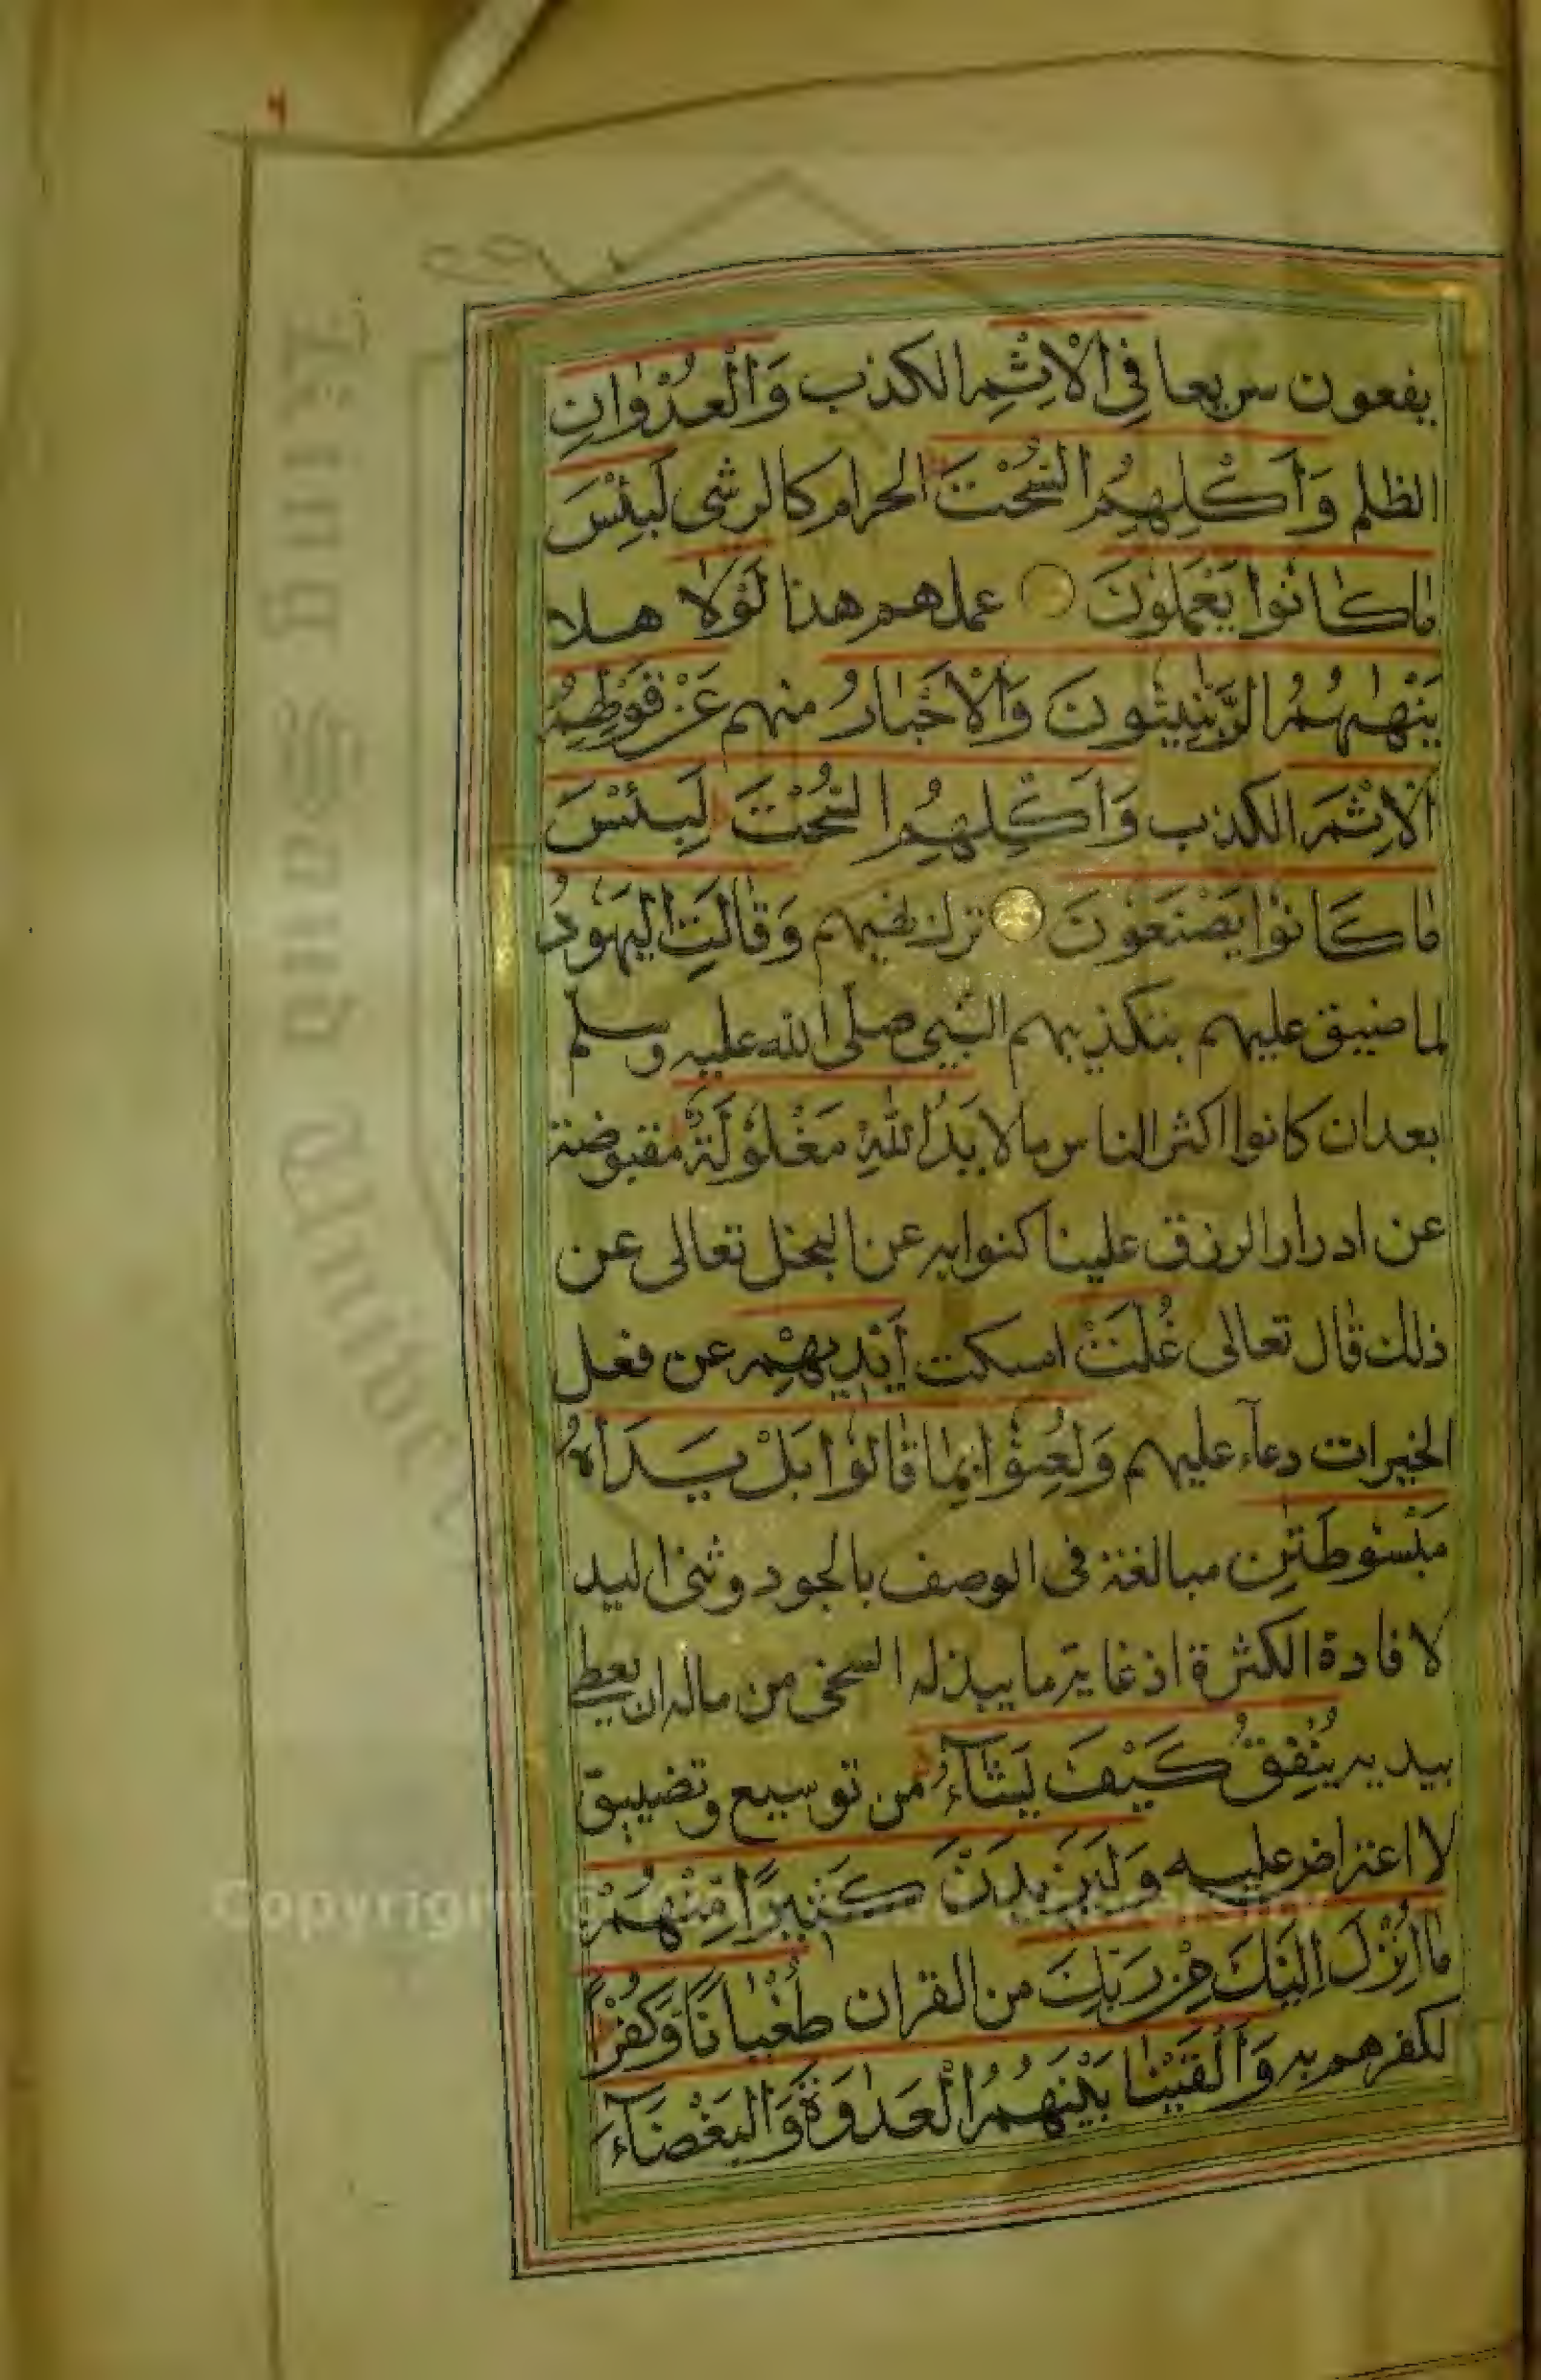 يقعون سريعا فِي الْاِثْمِ الكذب وَالْعُدْوَانِ
الظلم وَأَكْلِهِمُ السُّحْتَ الحرام كالرشى لَبِئْسَ
مَا كَانُوا يَعْمَلُونَ عملهم هذا لَوْلَا هلا
يَنْهٰيهُمُ الرَّبّٰنِيُّونَ وَالْاَحْبَارُ منهم عَنْ قَوْلِهِمُ
الْاِثْمَ الكذب وَاَكْلِهِمُ السُّحْتَ لَبِئْسَ
مَا كَانُوا يَصْنَعُونَ ترك نهيهم وَقَالَتِ الْيَهُودُ
لما ضيق عليهم بتكذيبهم النبي صلى الله عليه وسلم
بعد ان كانوا اكثر الناس مالا يَدُ اللّٰهِ مَغْلُولَةٌ مقبوضة
عن ادرار الرزق علينا كنوا به عن البخل تعالى عن
ذلك قال تعالى غُلَّتْ امسكت اَيْدِيهِمْ عن فعل
الخيرات دعآء عليهم وَلُعِنُوا بِمَا قَالُوا بَلْ يَدَاهُ
مَبْسُوطَتٰنِ مبالغة فى الوصف بالجود وثنى اليد
لافادة الكثرة اذ غاية ما يبذله السخى من ماله ان يعطى
بيديه يُنْفِقُ كَيْفَ يَشَآءُ من توسيع وتضييق
لا اعتراض عليه وَلَيَزِيدَنَّ كَثِيرًا مِنْهُمْ
مَا اُنْزِلَ اِلَيْكَ مِنْ رَبِّكَ من القران طُغْيَانًا وَكُفْرًا
لكفرهم به وَاَلْقَيْنَا بَيْنَهُمُ الْعَدَاوَةَ وَالْبَغْضَآءَ